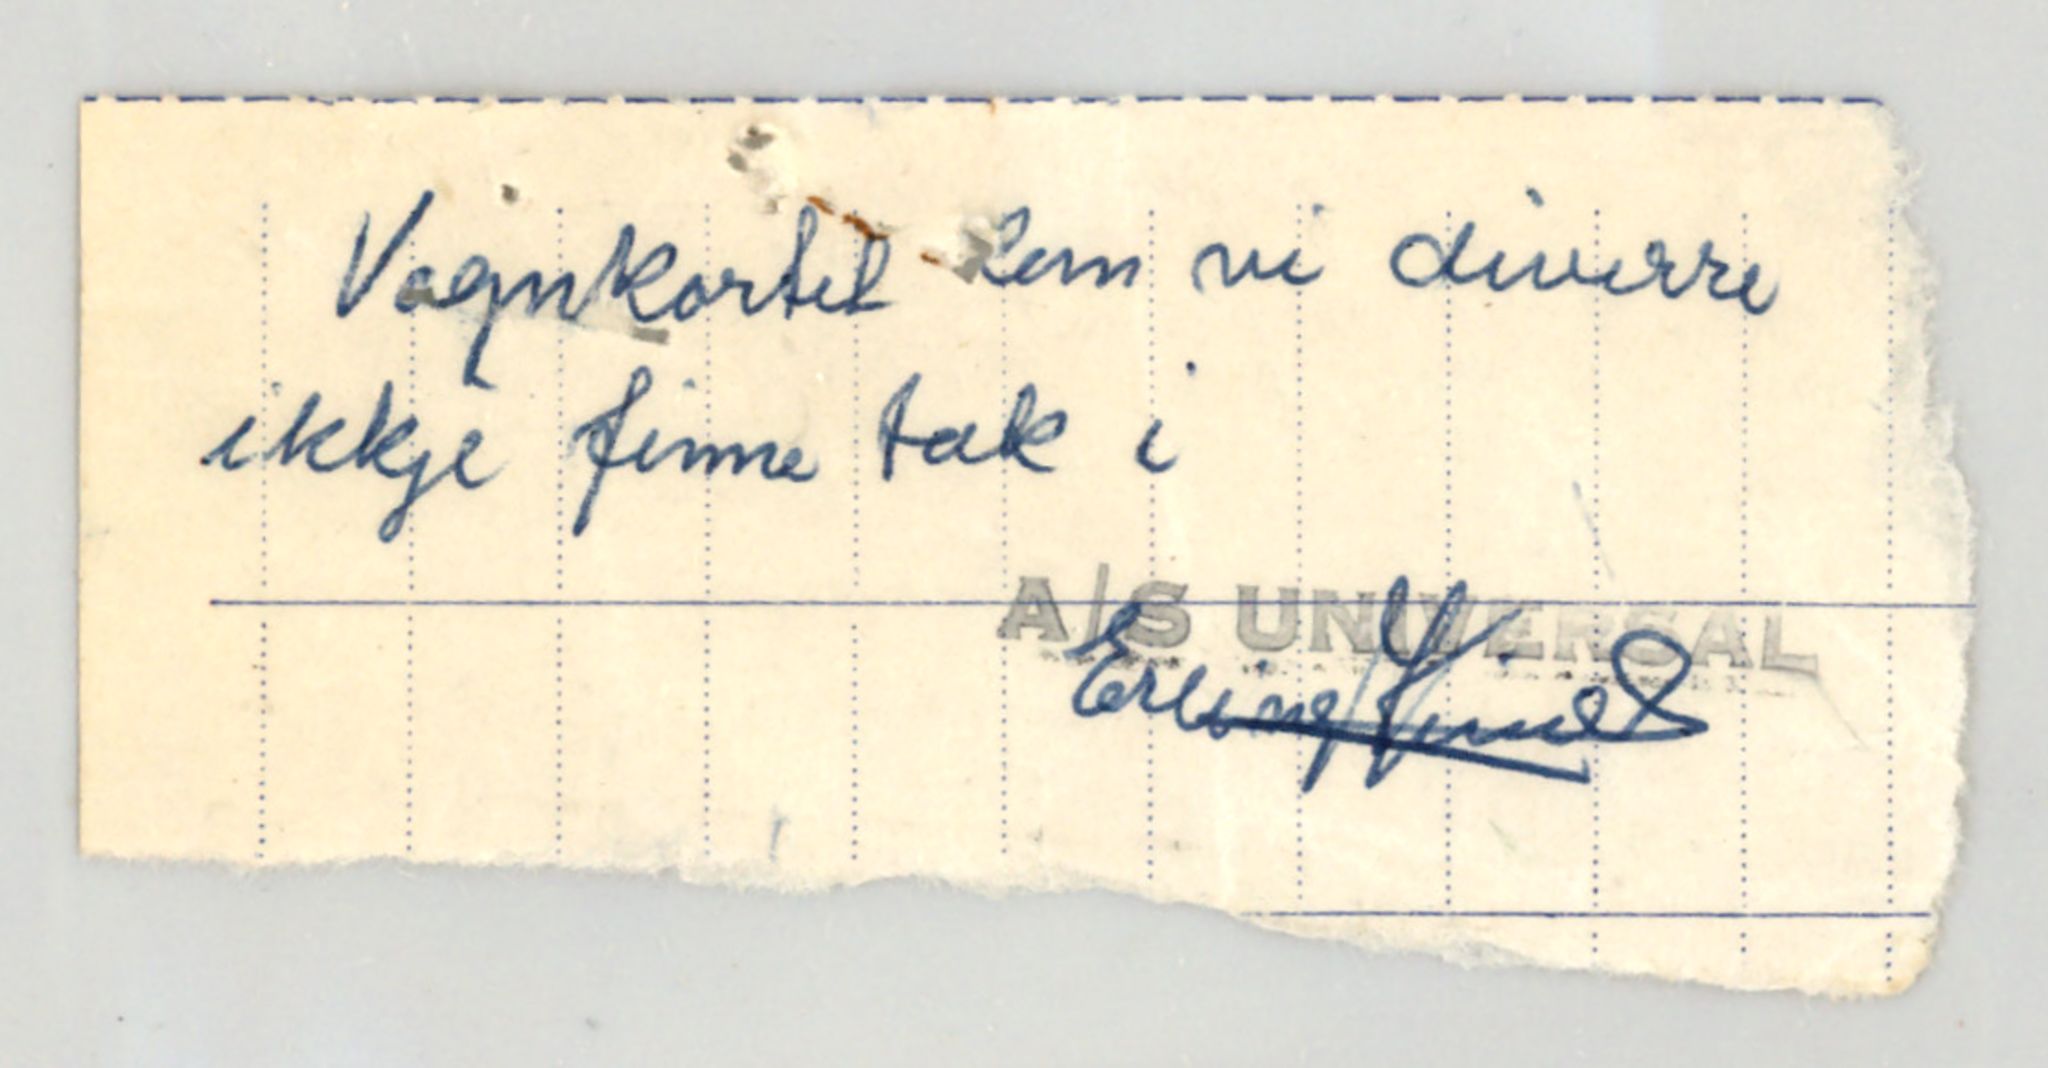 Vognkortet kan vi diverre
ikkje finne tak i
A/S UNIVERSAL
Erling